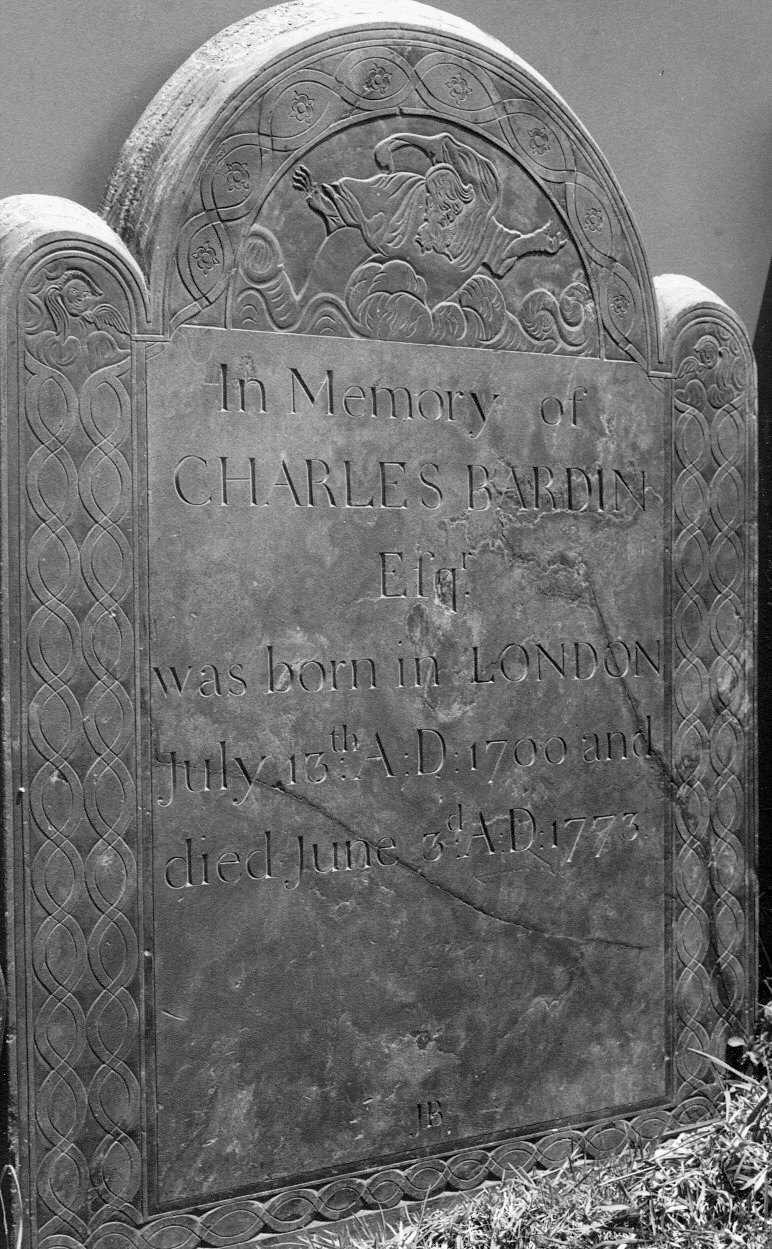 In Memory of
CHARLES BARDIN
Eſqʳ.
was born in LONDON
July 13ᵗʰ: A:D:1700 and
died June 3ᵈ: A:D:1773.
JB